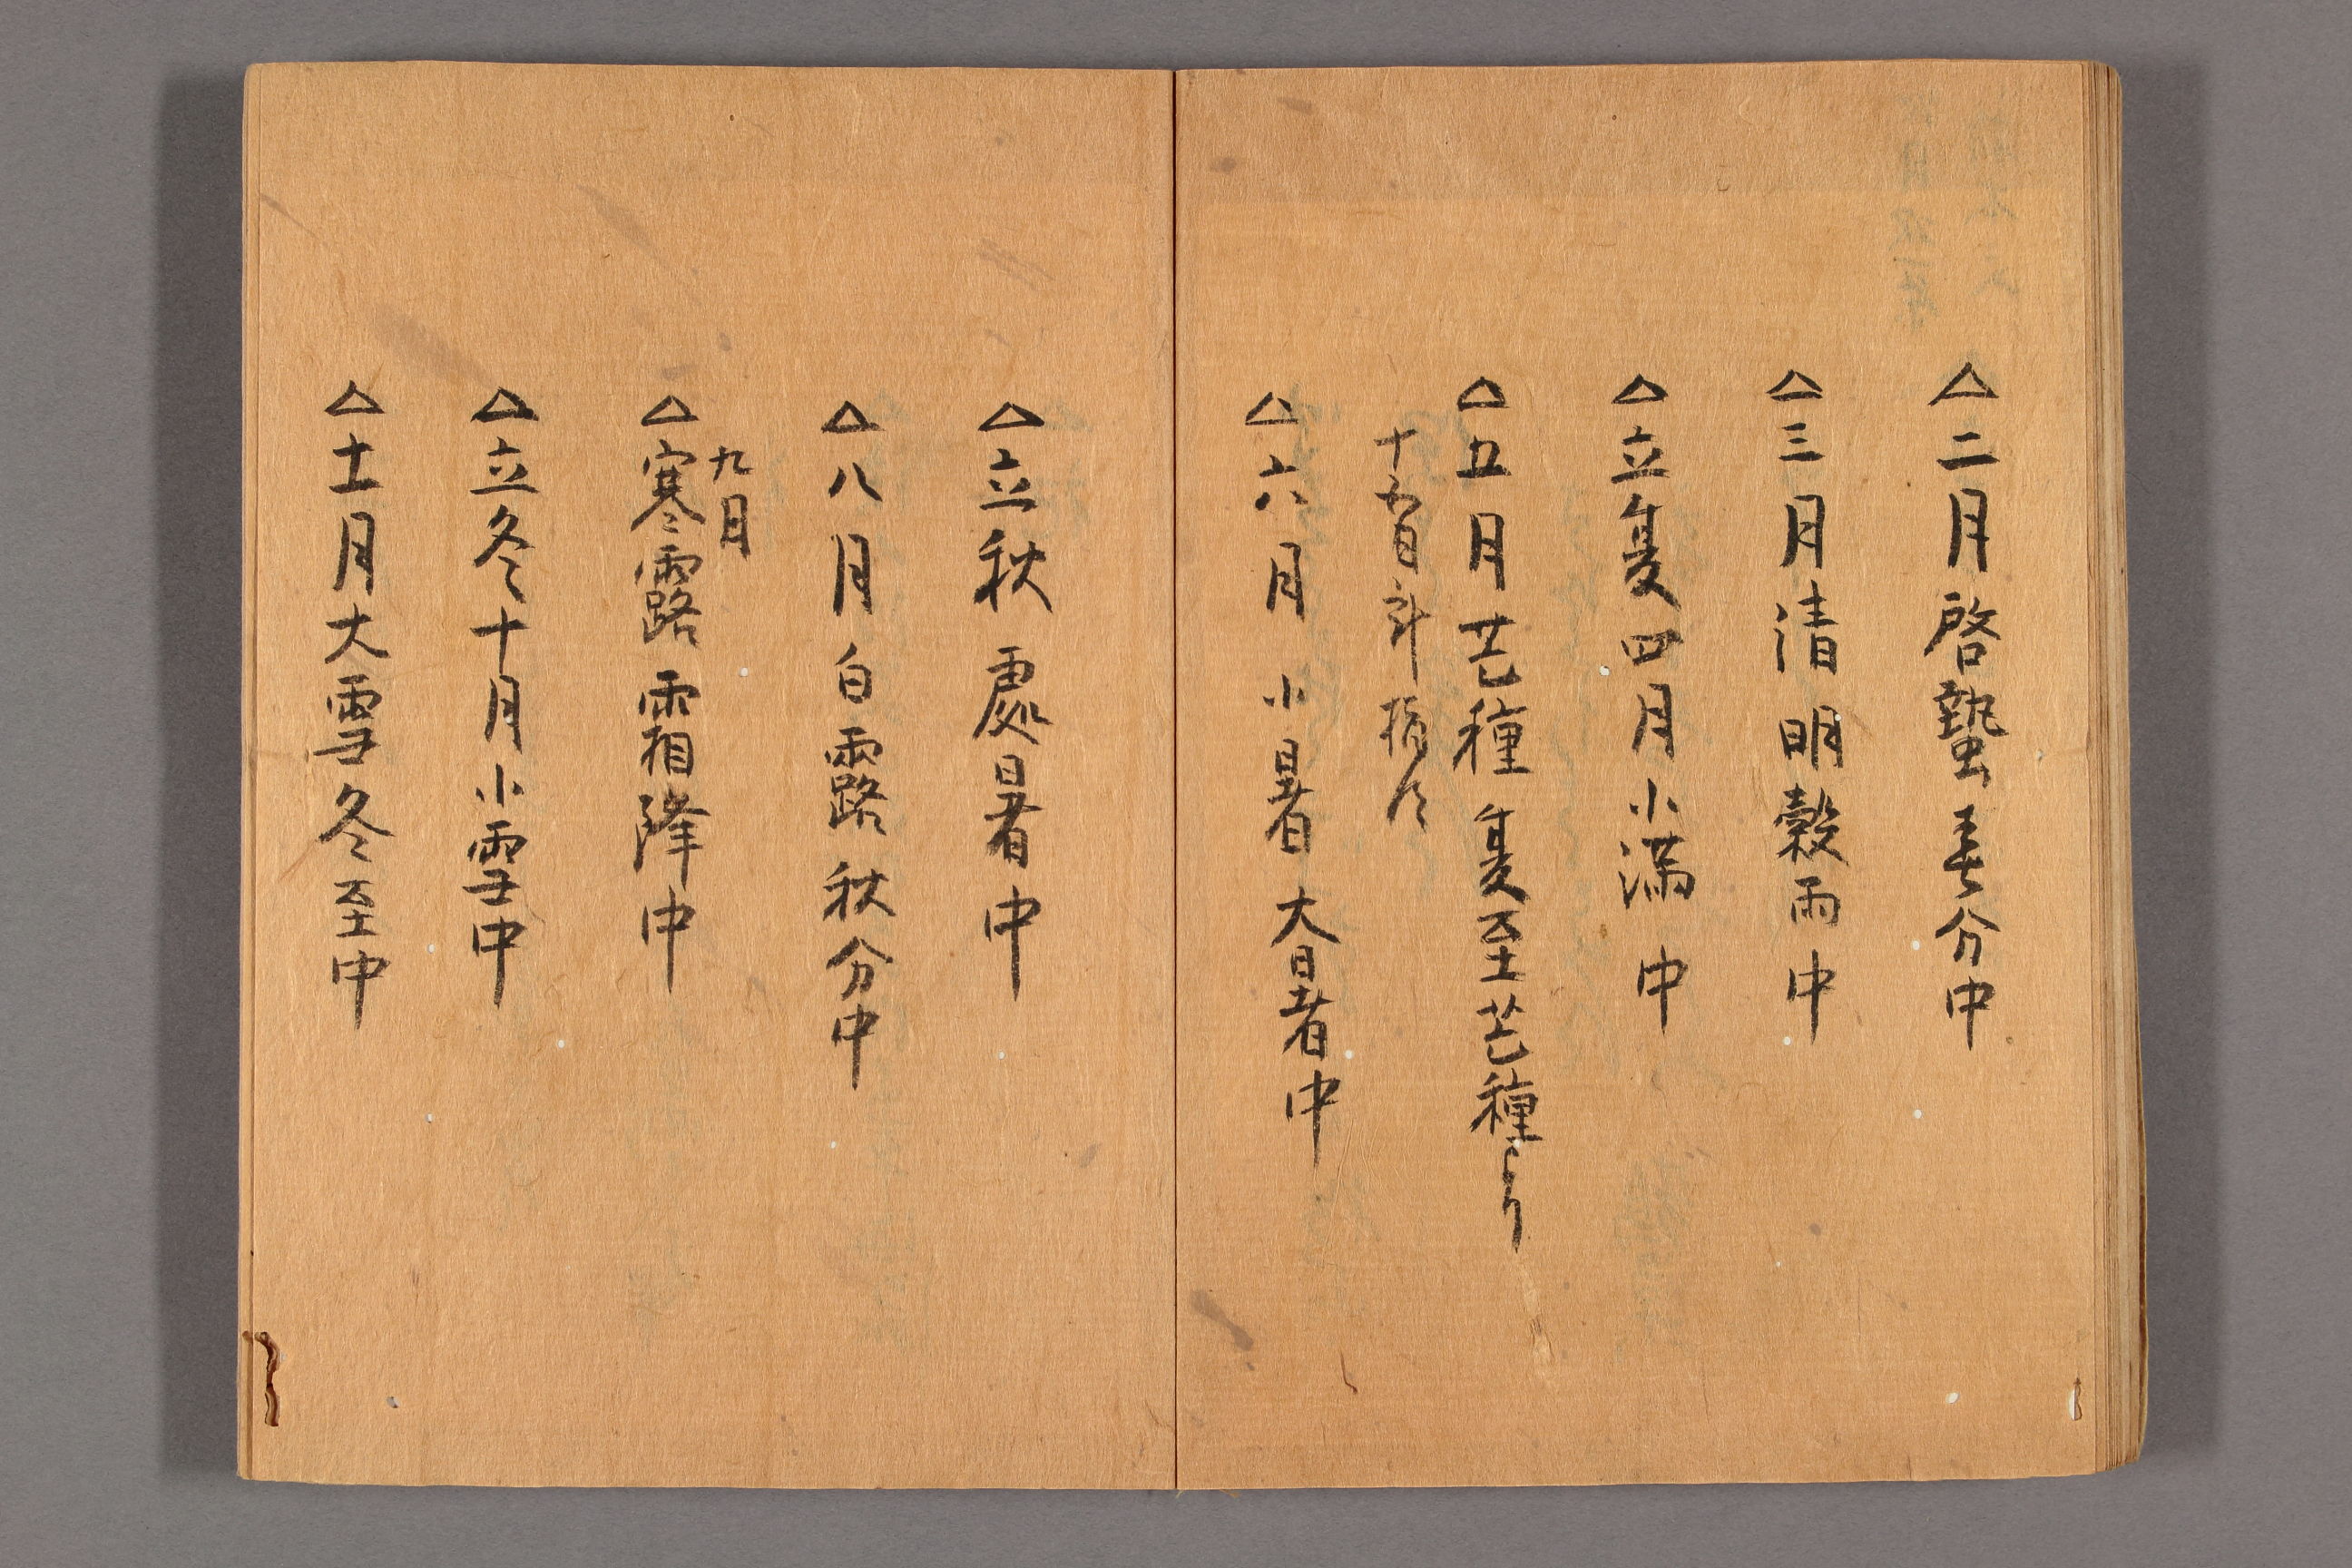 △二月啓蟄春分中
△三月清明穀雨中
△立夏四月小満中
△五月芒種夏至芒種より
十五日計
△六月小暑大暑中
△立秋處暑中
△八月白露秋分中
九月
△寒露霜降中
△立冬十月小雪中
△十一月大雪冬至中